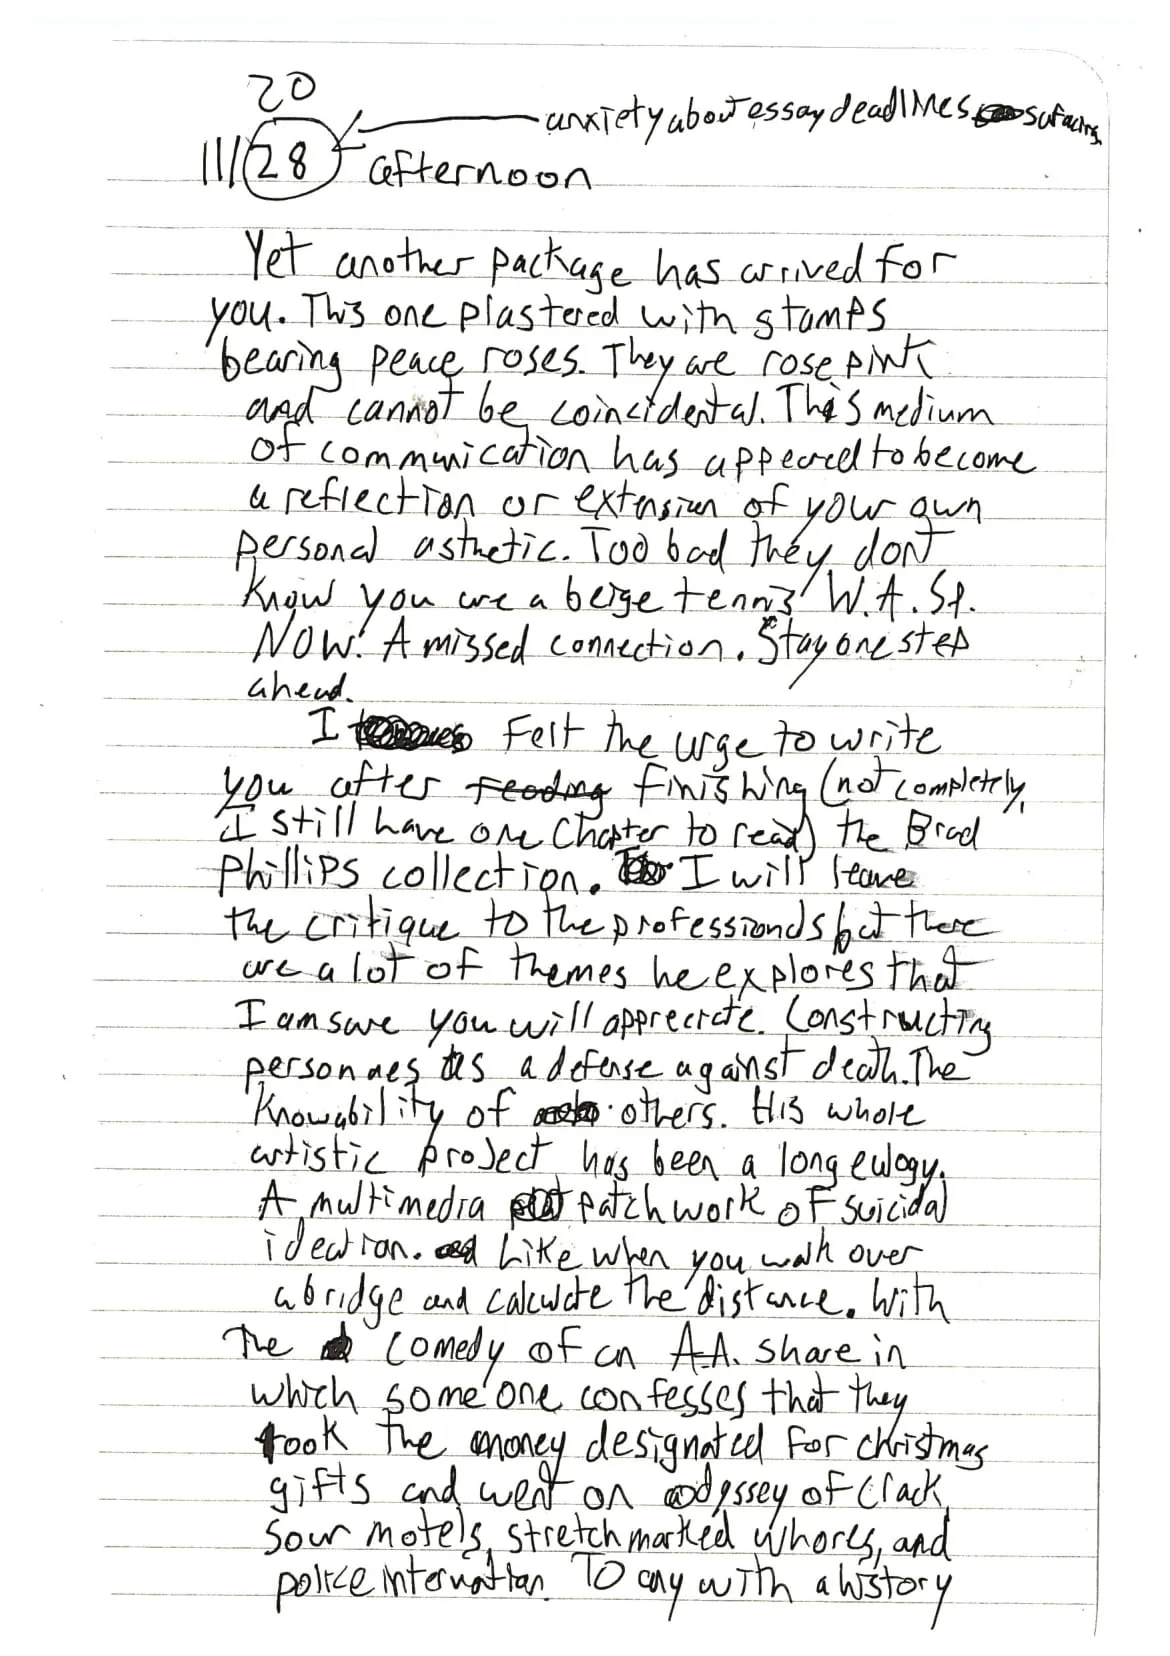 20
anxiety about essay deadlines sufacing
11/28 afternoon
Yet another package has arrived for
you. This one plastered with stamps
bearing peace roses. They are rose pink
and cannot be coincidental. This medium
of communication has appeared to become
a reflection or extension of your own
personal asthetic. Too bad they dont
know you are a beige tennis W.A.Sp.
NOW! A missed connection. Stay one step
ahead.
I felt the urge to write
you after reading finishing (not completely,
I still have one chapter to read) the Brad
Phillips collection. I will leave
the critique to the professionals but there
are a lot of themes he explores that
I am sure you will appreciate. Constructing
personaes as a defense against death. The
Knowability of others. His whole
artistic project has been a long eulogy.
A multimedia patchwork of suicidal
ideation. Like when you walk over
a bridge and calculate the distance. With
The comedy of an A.A. share in
which someone confesses that they
took the money designated for christmas
gifts and went on odyssey of crack,
sour motels, stretchmarked whores, and
police To any with a history